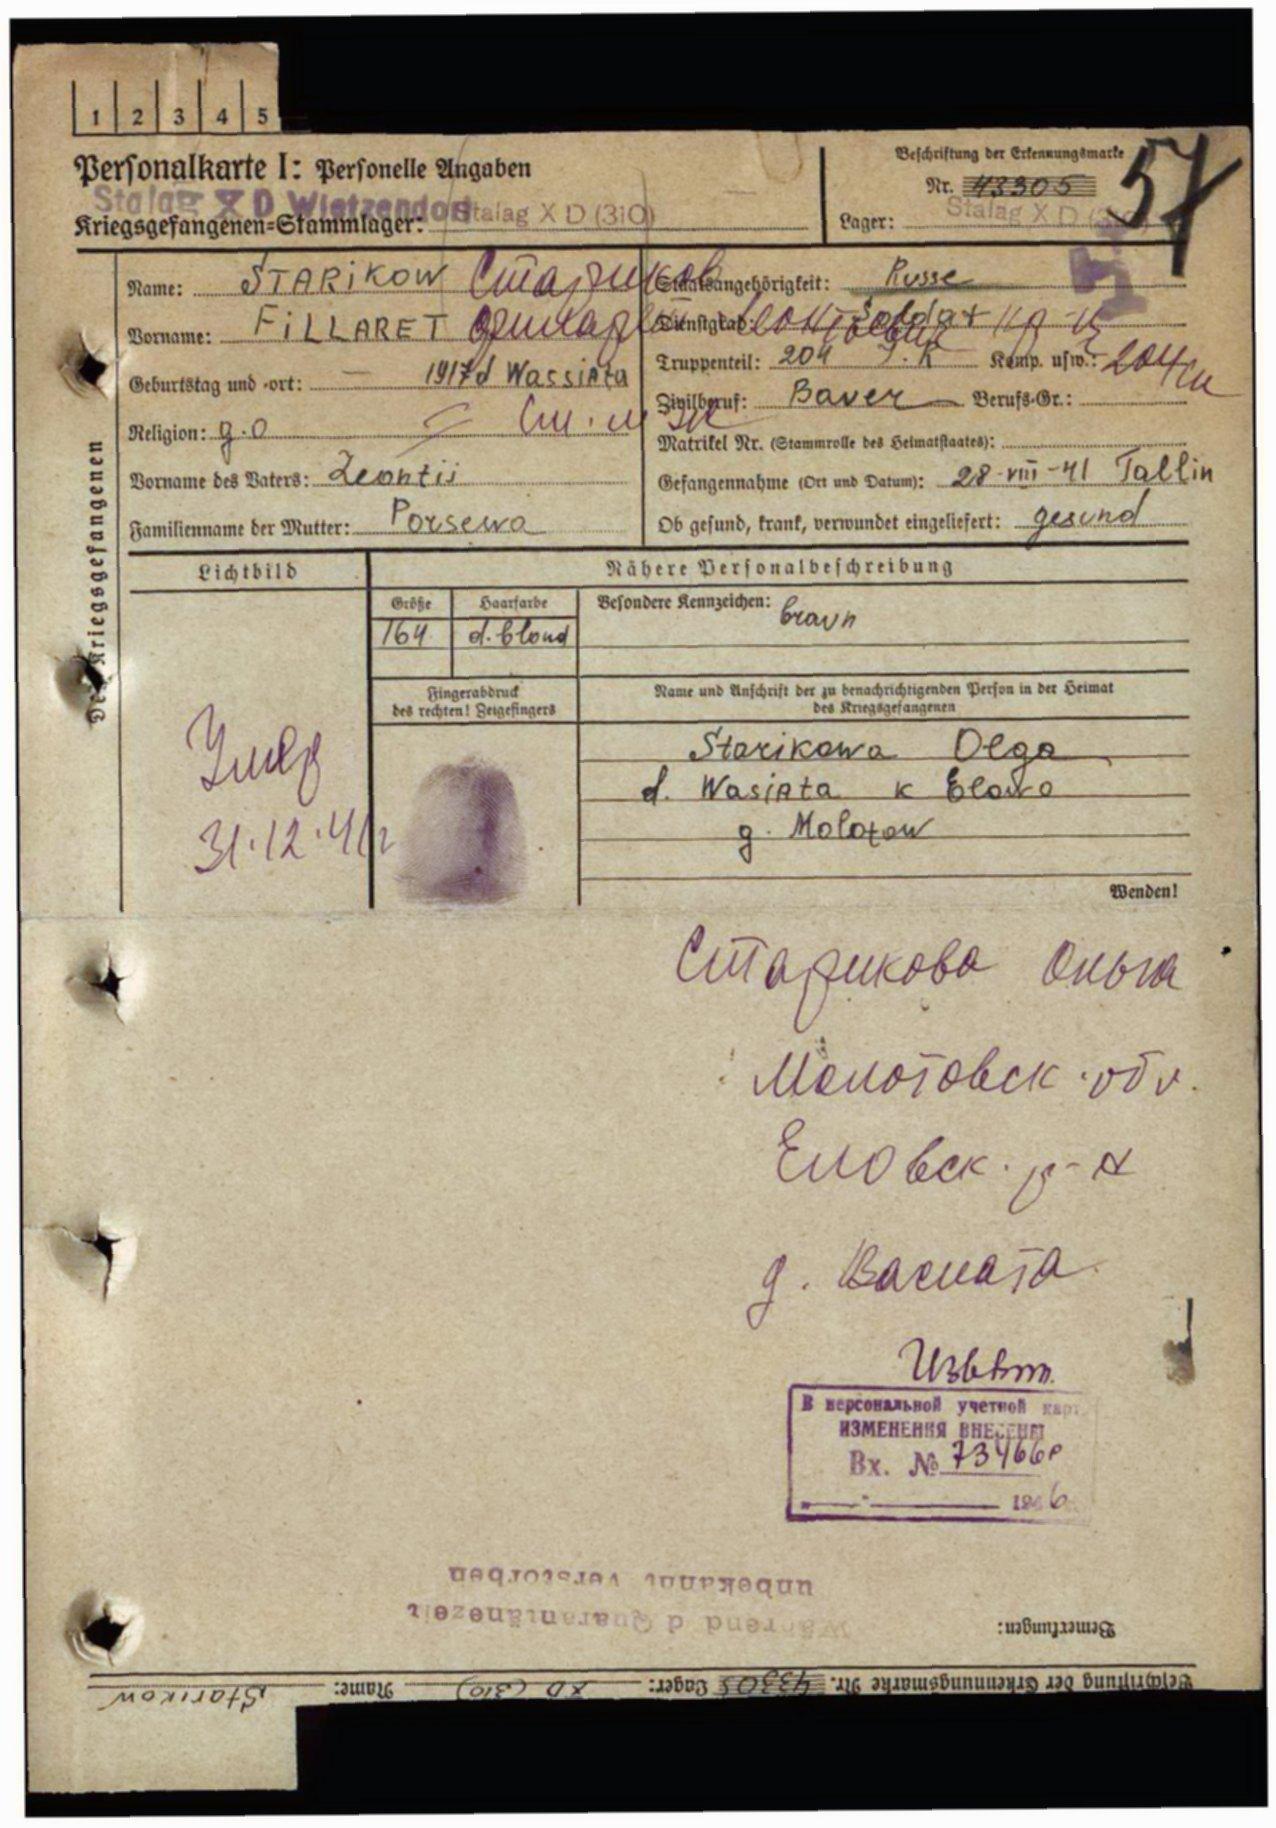 1 2 3 4 5
Personalkarte I: Personelle Angaben
Stalag X D Wietzendorf
Kriegsgefangenen-Stammlager: Stalag X D (310)
Beschriftung der Erkennungsmarke
Nr. 43305
Lager: Stalag X D (310)
57
Des Kriegsgefangenen
Name: STARIKOW Стариков
Vorname: FiLLARET Филарет Леонтьевич
Geburtstag und -ort: — 1917 d Wassiata
Religion: g.o
Vorname des Vaters: Leontii
Familienname der Mutter: Porsewa
Staatsangehörigkeit: Russe
Dienstgrad: Soldat кр-ц
Truppenteil: 204 J.R Komp. usw.: 204
Zivilberuf: Bauer Berufs-Gr.:
Matrikel Nr. (Stammrolle des Heimatstaates):
Gefangennahme (Ort und Datum): 28-VIII-41 Tallin
Ob gesund, krank, verwundet eingeliefert: gesund
Lichtbild
Nähere Personalbeschreibung
Größe Haarfarbe Besondere Kennzeichen: braun
164 d.blond
Fingerabdruck
des rechten! Zeigefingers
Name und Anschrift der zu benachrichtigenden Person in der Heimat
des Kriegsgefangenen
Starikowa Olga
d. Wasiata k Elowo
g. Molotow
Умер
31.12.41г
Wenden!
Старикова Ольга
Молотовск. обл.
Еловск. р-н
д. Васиата
Извещ.
В персональной учетной карт
ИЗМЕНЕНИЯ ВНЕСЕНЫ
Вх. № 73466р
1946
Bemerkungen:
Während d Quarantänezeit
unbekannt verstorben
Beschriftung der Erkennungsmarke Nr. 43305 Lager: XD (310) Name: Starikow